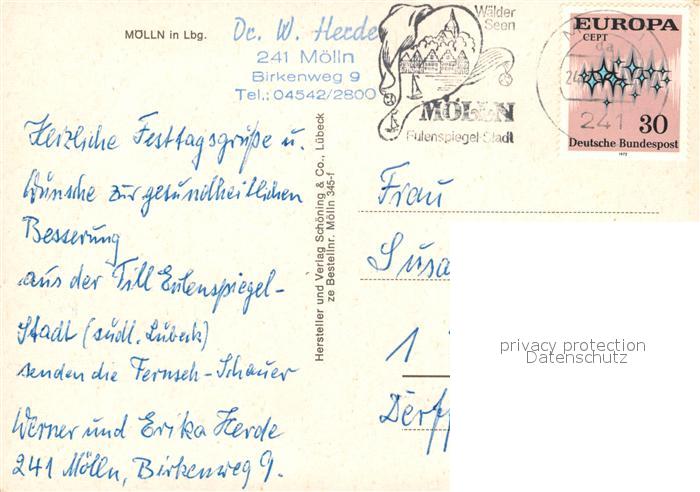 MÖLLN in Lbg.
Dr. W. Herde
241 Mölln
Birkenweg 9
Tel.: 04542/2800
Wälder
Seen
MÖLLN
Eulenspiegel-Stadt
241
EUROPA
CEPT
30
Deutsche Bundespost
1972
Herzliche Festtagsgrüße u.
Wünsche zur gesundheitlichen
Besserung
aus der Till Eulenspiegel-
Stadt (südl. Lübeck)
senden die Fernseh-Schauer
Werner und Erika Herde
241 Mölln, Birkenweg 9.
Hersteller und Verlag Schöning & Co., Lübeck
ze Bestellnr. Mölln 345-f
Frau
Susa
1
Derff
privacy protection
Datenschutz